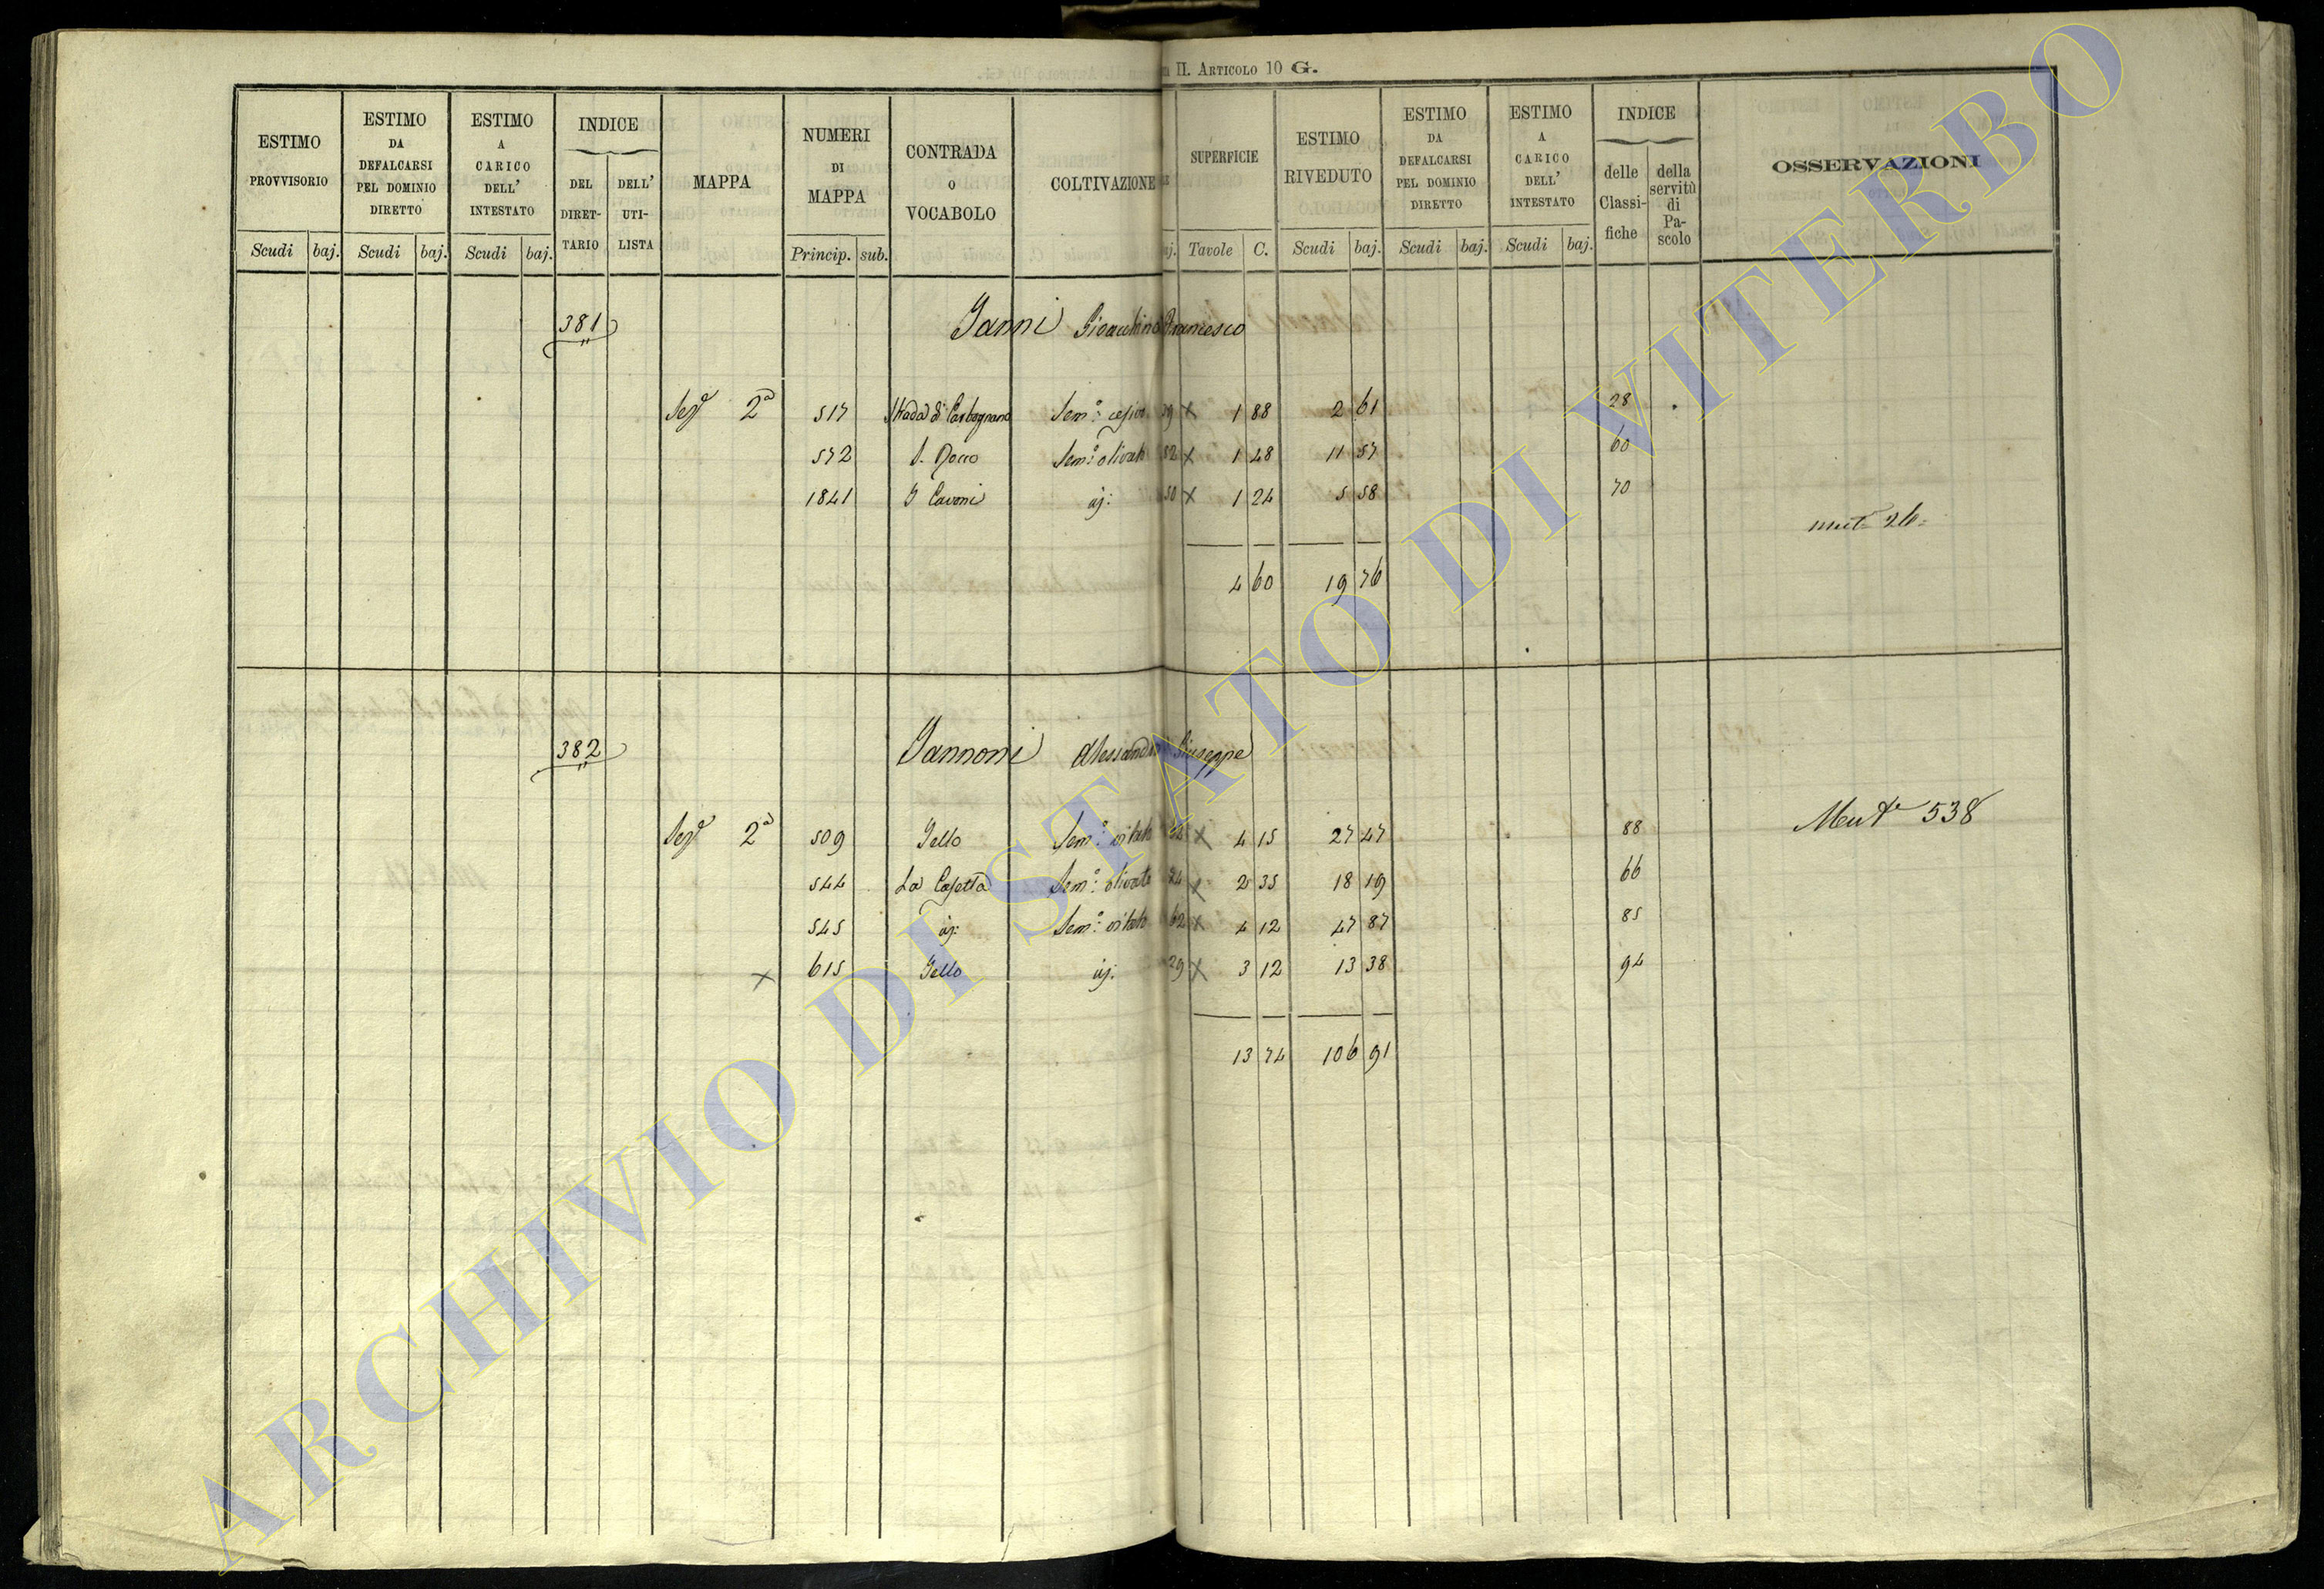 II. ARTICOLO 10 G.
ESTIMO PROVVISORIO
Scudi baj.
ESTIMO DA DEFALCARSI PEL DOMINIO DIRETTO
Scudi baj.
ESTIMO A CARICO DELL' INTESTATO
Scudi baj.
INDICE
DEL DIRET-TARIO
DELL' UTI-LISTA
MAPPA
NUMERI DI MAPPA
Princip. sub.
CONTRADA O VOCABOLO
COLTIVAZIONE
SUPERFICIE
Tavole C.
ESTIMO RIVEDUTO
Scudi baj.
ESTIMO DA DEFALCARSI PEL DOMINIO DIRETTO
Scudi baj.
ESTIMO A CARICO DELL' INTESTATO
Scudi baj.
INDICE
delle Classi-fiche
della servitù di Pa-scolo
OSSERVAZIONI
381 Janni Gioacchino Francesco
Sez.e 2a 517 Strada di Carbognano Sem.o 29 x 1 88 2 61 28
572 S. Rocco Sem.o olivato 52 x 1 48 11 57 60
1841 I Cavoni id: 50 x 1 24 5 58 70
mut. 26
4 60 19 76
382 Jannoni Alessandro Giuseppe
Sez.e 2a 509 Jello Sem.o vitato x 4 15 27 47 88 Mut.e 538
544 La Casetta Sem.o olivato 24 x 2 35 18 19 66
545 id: Sem.o vitato 62 x 4 12 47 87 85
x 615 Jello id: 29 x 3 12 13 38 94
13 74 106 91
ARCHIVIO DI STATO DI VITERBO